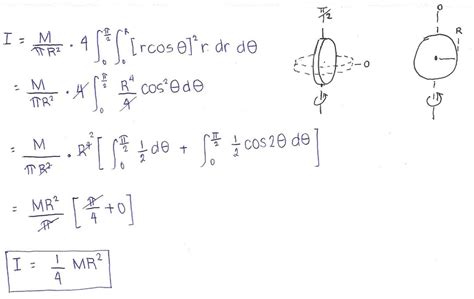 I = M/πR² · 4 ∫₀^(π/2) ∫₀^R [r cos θ]² r dr dθ
= M/πR² · 4 ∫₀^(π/2) R⁴/4 cos²θ dθ
= M/πR² · R⁴ ² [ ∫₀^(π/2) 1/2 dθ + ∫₀^(π/2) 1/2 cos 2θ dθ ]
= MR²/π [ π/4 + 0 ]
I = 1/4 MR²
π/2
0
0
R